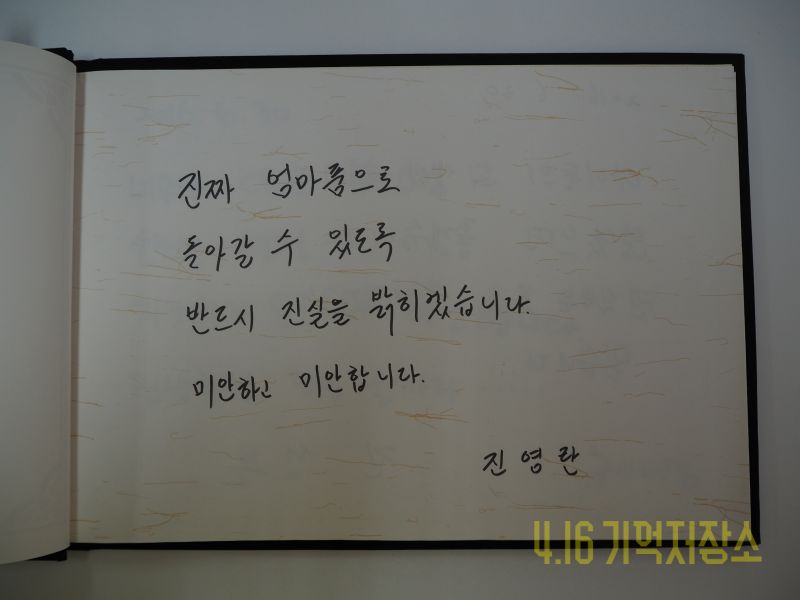 진짜 엄마품으로
돌아갈 수 있도록
반드시 진실을 밝히겠습니다.
미안하고 미안합니다.
진영란
4.16 기억저장소